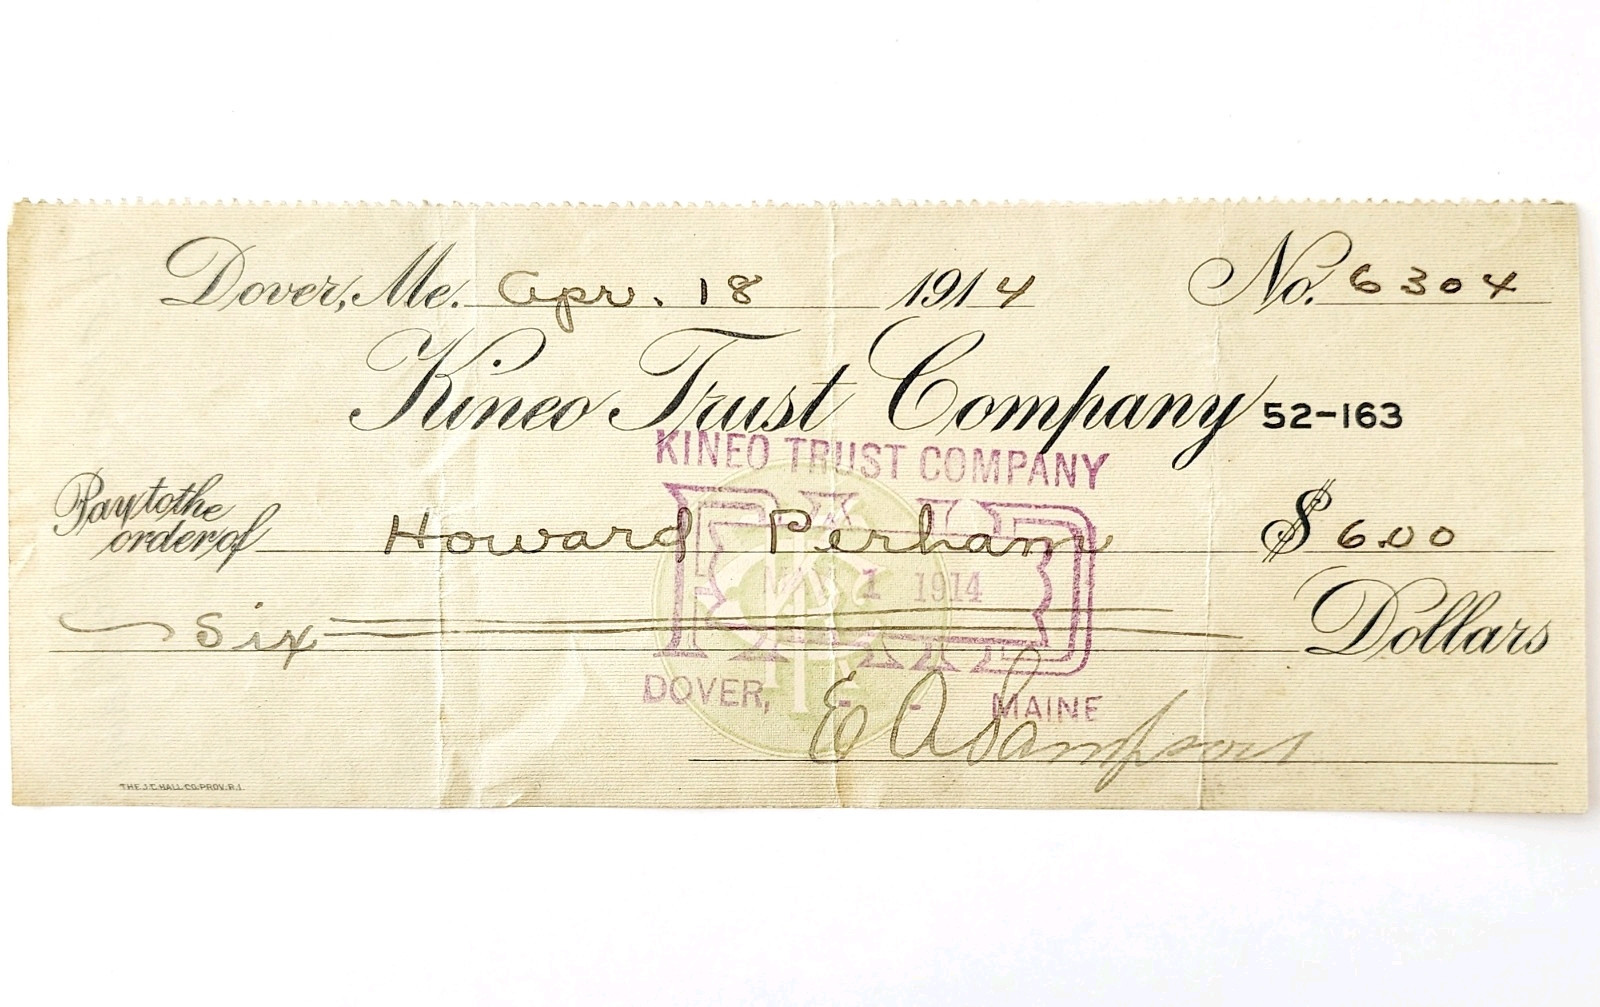 Dover, Me. Apr. 18 1914 No. 6304
Kineo Trust Company 52-163
KINEO TRUST COMPANY
Pay to the
order of Howard Perham $ 6.00
PAID
MAY 1 1914
Six Dollars
DOVER, - - MAINE
E A Sampson
THE J.C. HALL CO. PROV. R.I.